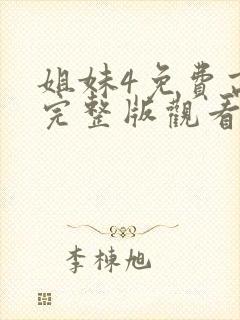 姐妹4免費高
完整版觀看
李棟旭